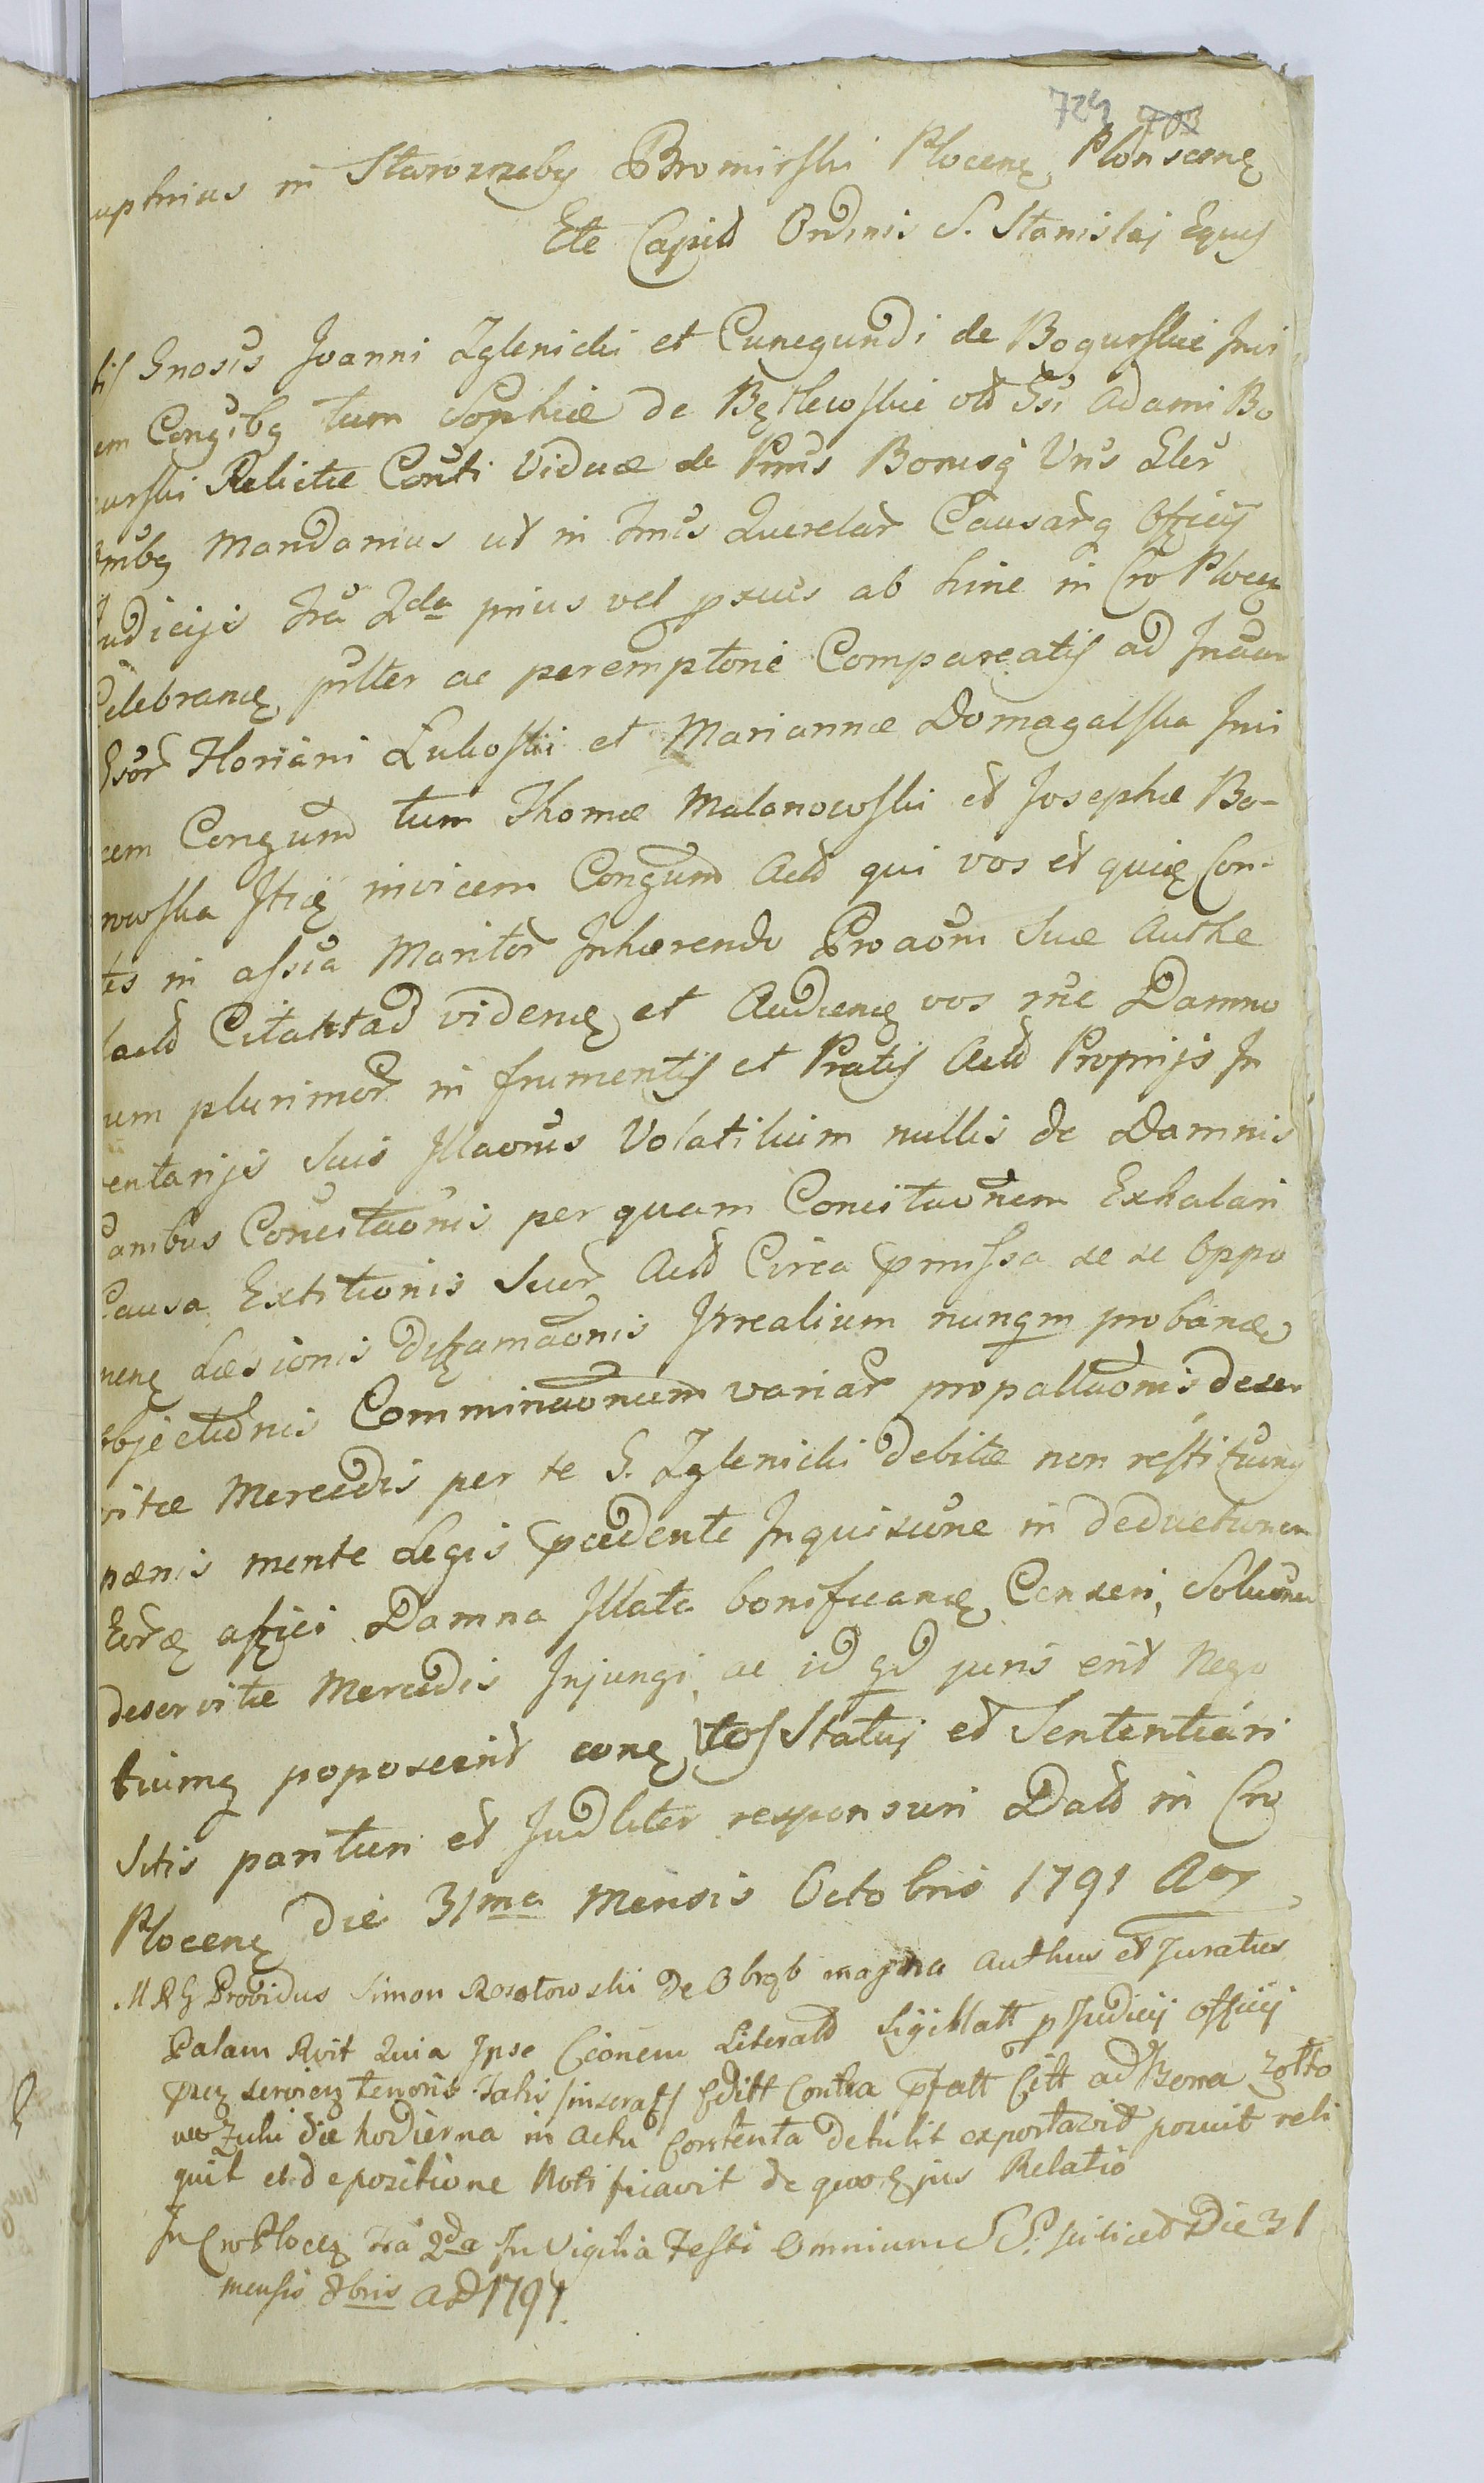 729 703
uphrius in Starozreby Bromirski Plocenę Plonscenę
Ete Capid Ordinis S. Stanislai Eques
Gnosis Joanni Zglenicki et Cunegundi de Bogurskie Invi
em Congibg tum Sophiæ de Bętlewskie old Gsi Adami Bo
gurski Relictæ Conti Viduæ de Pmis Bonisq Vris Gler
mnibg Mandamus ut in Tmis Querelar Causarq Officij
Judicijs fra 2da prius vel pxuis ab hinc in Cro Plocen
Celebranę pslter ac peremptorie Compareatis ad Instan
Gsor Floriani Lukoski et Mariannæ Domagalska Invi
cem Congum tum Thomæ Malanowski et Josephæ Bo-
rowska Itię invicem Congum Actt qui vos et quię Con-
tes in assia Maritor Inhærendo Proaoni Suæ Authe
lactt Citattad videnę et Audienę vos rne Damno
um plurimor in frumentis et Pratis Actt Proprijs In
ventarijs suis Illaonis Volatilium nullis de Damnis
Canibus Concitaonis per quam Concitaonem Exhalari
Causa Extitionis Suor Actt Circa pmissa se se Oppo
nenę Læsionis Diffamaonis Irrealium nunqm probanæ
objectionis Comminaonum variar propallaonis deser
vitæ Mercedis per te G. Zglenicki debitæ non restituing
pænis mente Legis præcedente Inquisione in deductionem
Eorę affici Damna Illata bonificanę Censeri, Soluonem
deservitæ Mercedis Injungi, ac id qd juris erit Nego
tiumq poposcerit cong vos Statui et Sententiari
Sitis parituri et Judliter responsuri Datt in Cro
Plocenę die 31ma Mensis Octobris 1791 Ao
M R G Providus Simon Rosotowski de Obrąb magna Authus et Juratus
Palam Rvit Quia Ipse Cionem Literatt Sigillatt p Judicij officij
prez servienz tenoris talis /inserat/ Editt Contra pfatt Citt ad Bona Zotto
wo Zuki die hodierna in Actu Contenta detulit exportavit posuit reli
quit et depositione Notificavit de quo Ejus Relatio
In Cro Plocen fra 2da In Vigilia Festi Omnium S S. scilicet Die 31
mensis 8bris AD 1791.